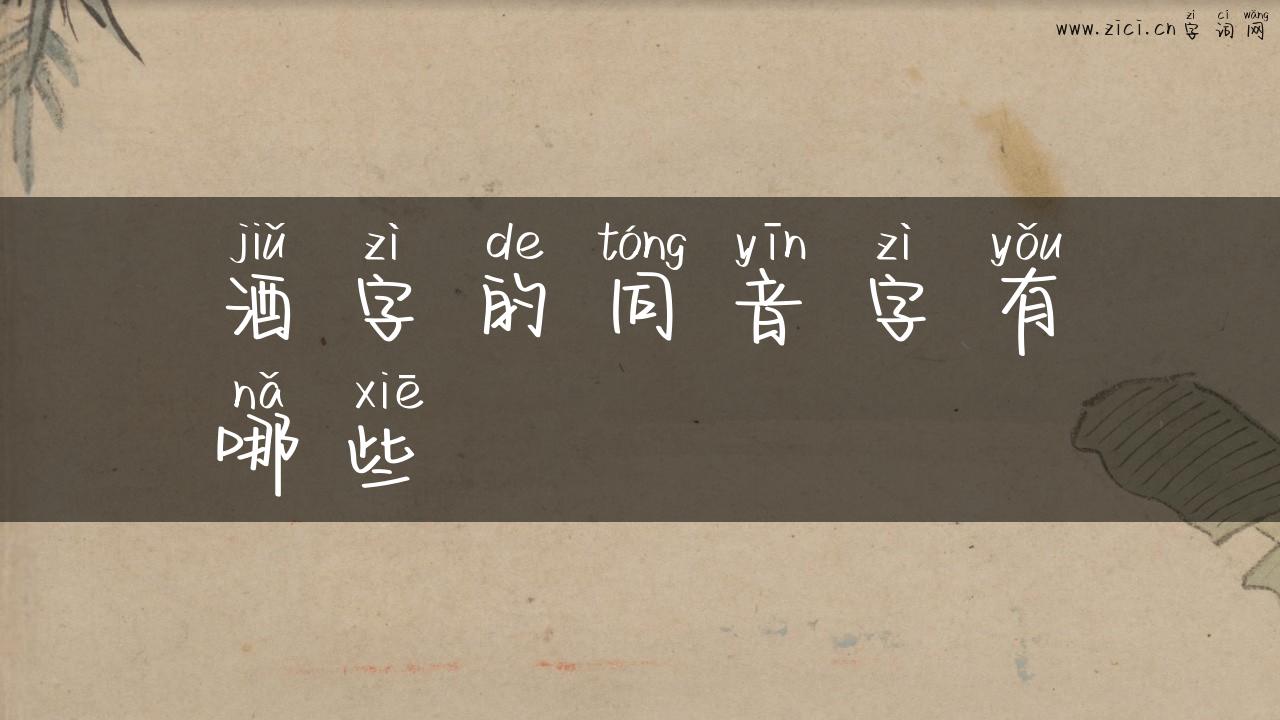 zì cí wǎng
www.zici.cn 字 词 网
jiǔ zì de tóng yīn zì yǒu
酒 字 的 同 音 字 有
nǎ xiē
哪 些